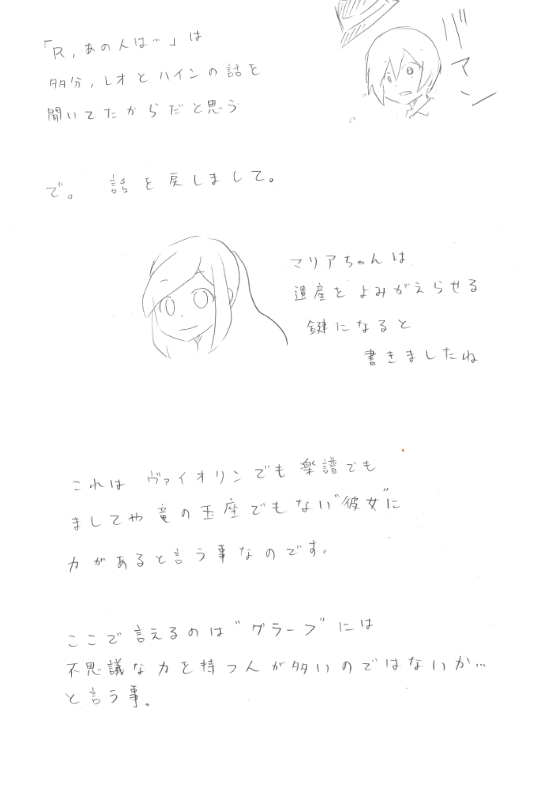 「R,あの人は…」は
多分,レオとハインの話を
聞いてたからだと思う
バマン
で。 話を戻しまして。
マリアちゃんは
遺産をよみがえらせる
鍵になると
書きましたね
これは ヴァイオリンでも楽譜でも
ましてや竜の玉座でもない"彼女"に
力があると言う事なのです。
ここで言えるのは"グラーフ"には
不思議な力を持つ人が多いのではないか…
と言う事。